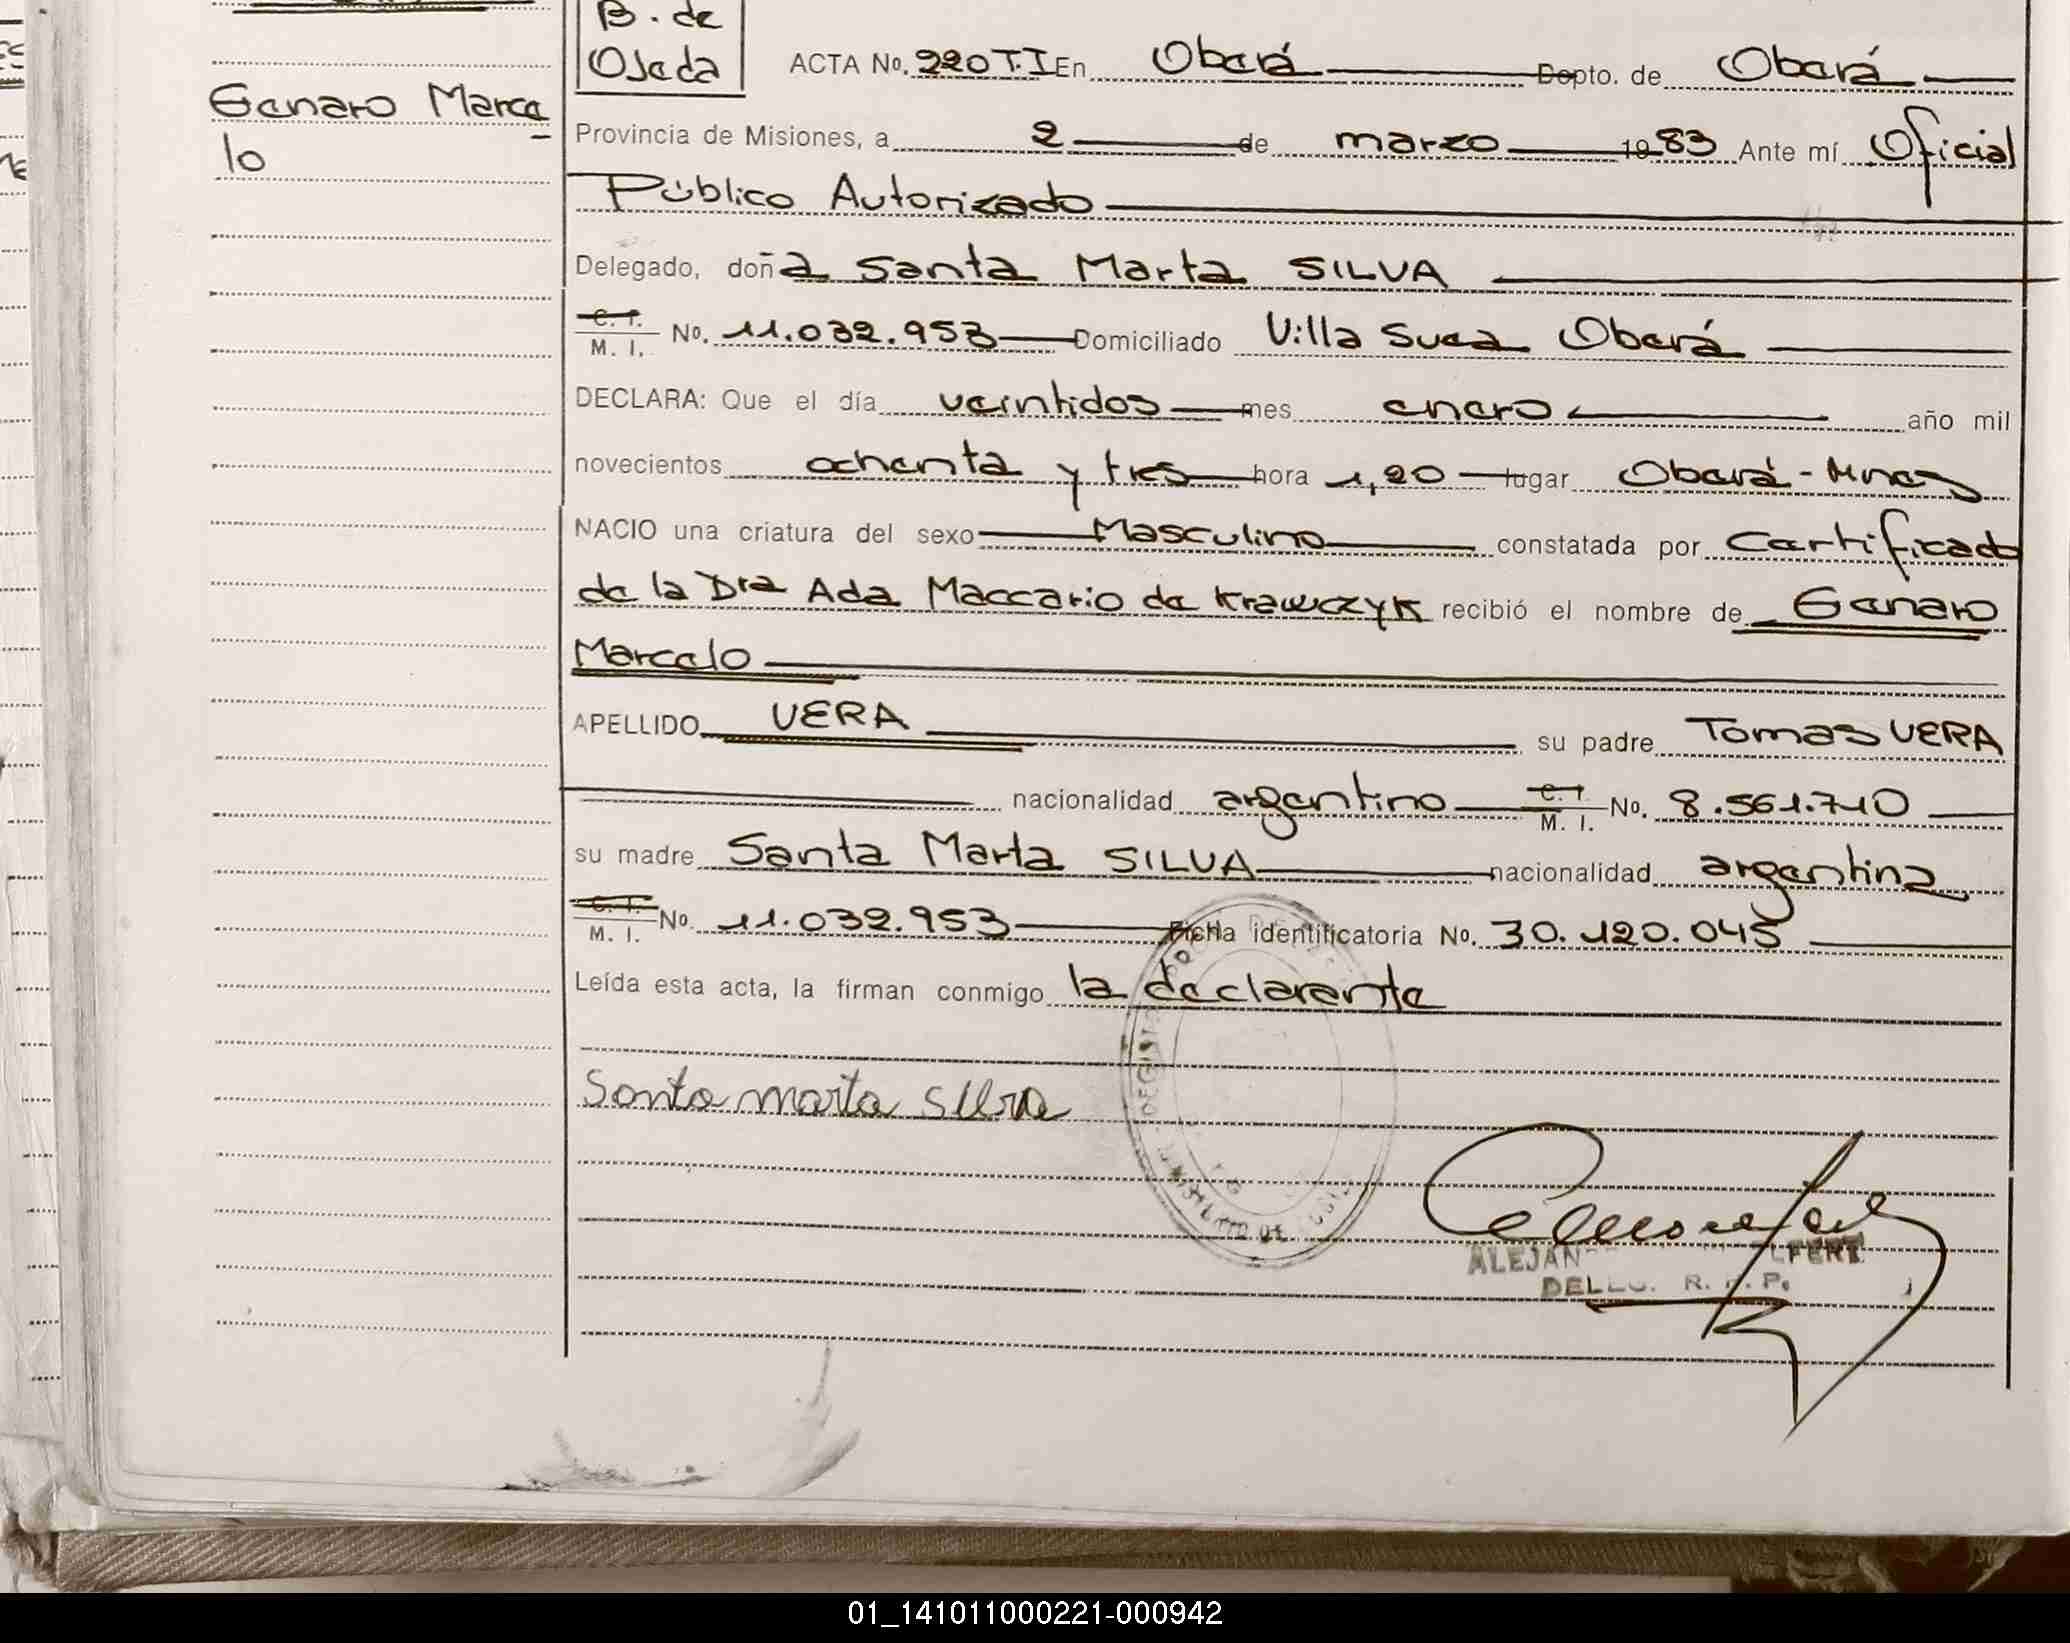 B. de
Ojeda
ACTA No. 220 T.I En Oberá Depto. de Oberá
Genaro Marce
lo
Provincia de Misiones, a 2 de marzo 1983 Ante mí Oficial
Público Autorizado
Delegado, doña Santa Marta SILVA
C. I.
M. I. No. 11.032.953 Domiciliado Villa Suea Oberá
DECLARA: Que el día veintidos mes enero año mil
novecientos ochenta y tres hora 1,20 lugar Oberá - Mnes
NACIO una criatura del sexo Masculino constatada por Certificado
de la Dra Ada Maccario de Krawczyk recibió el nombre de Genaro
Marcelo
APELLIDO VERA su padre Tomas VERA
nacionalidad argentino C. I. M. I. No. 8.561.710
su madre Santa Marta SILVA nacionalidad argentina
C. I.
M. I. No. 11.032.953 Ficha identificatoria No. 30.120.045
Leída esta acta, la firman conmigo la declarante
Santa marta Silva
01_141011000221-000942